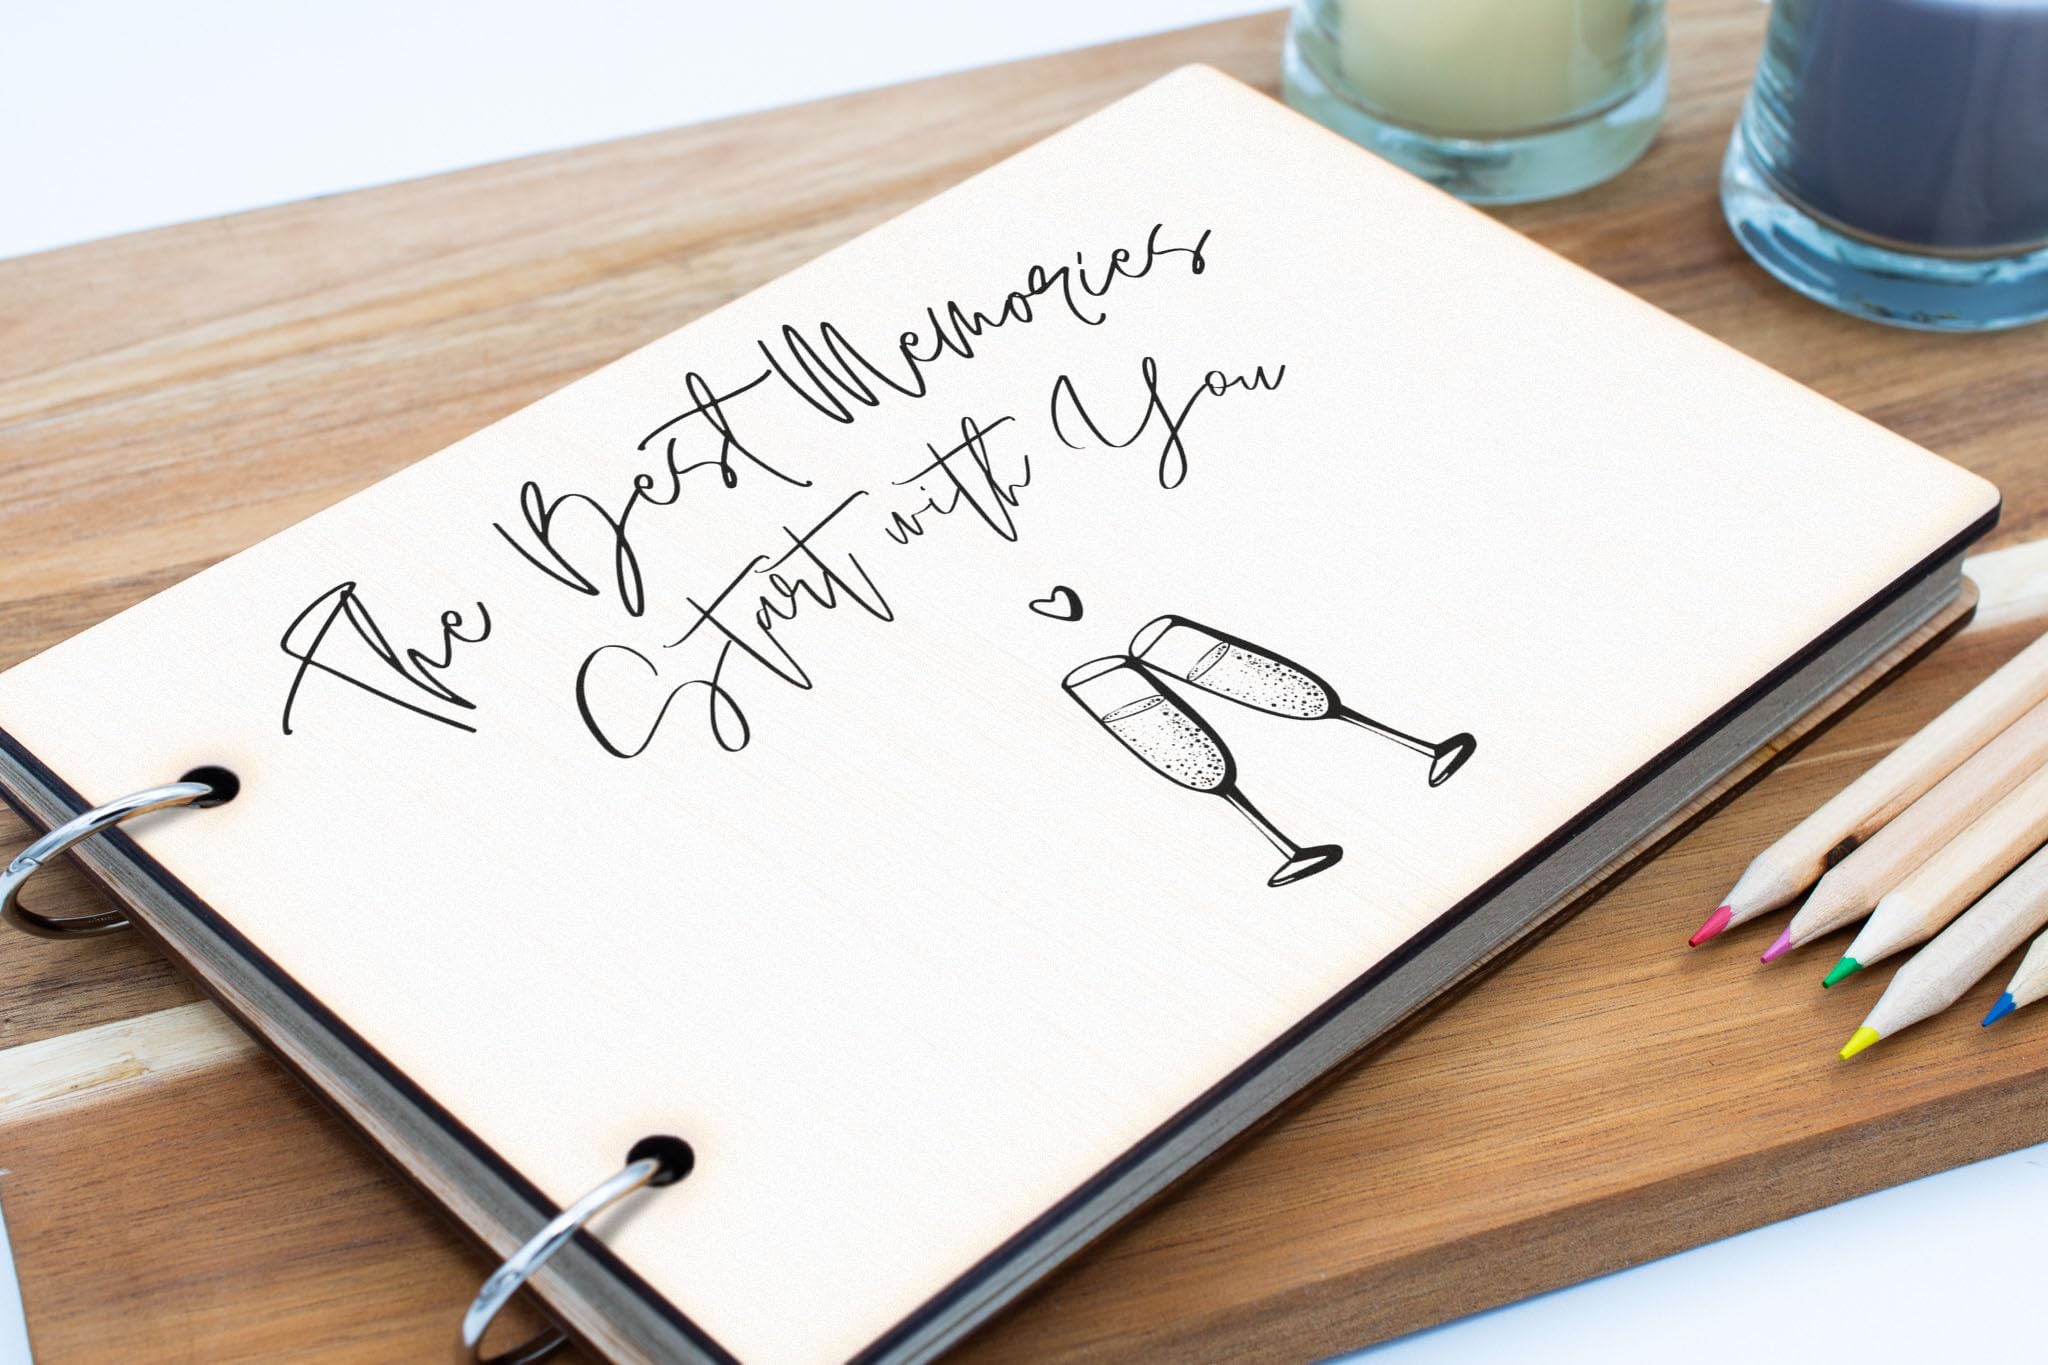 The Best Memories
Start with You